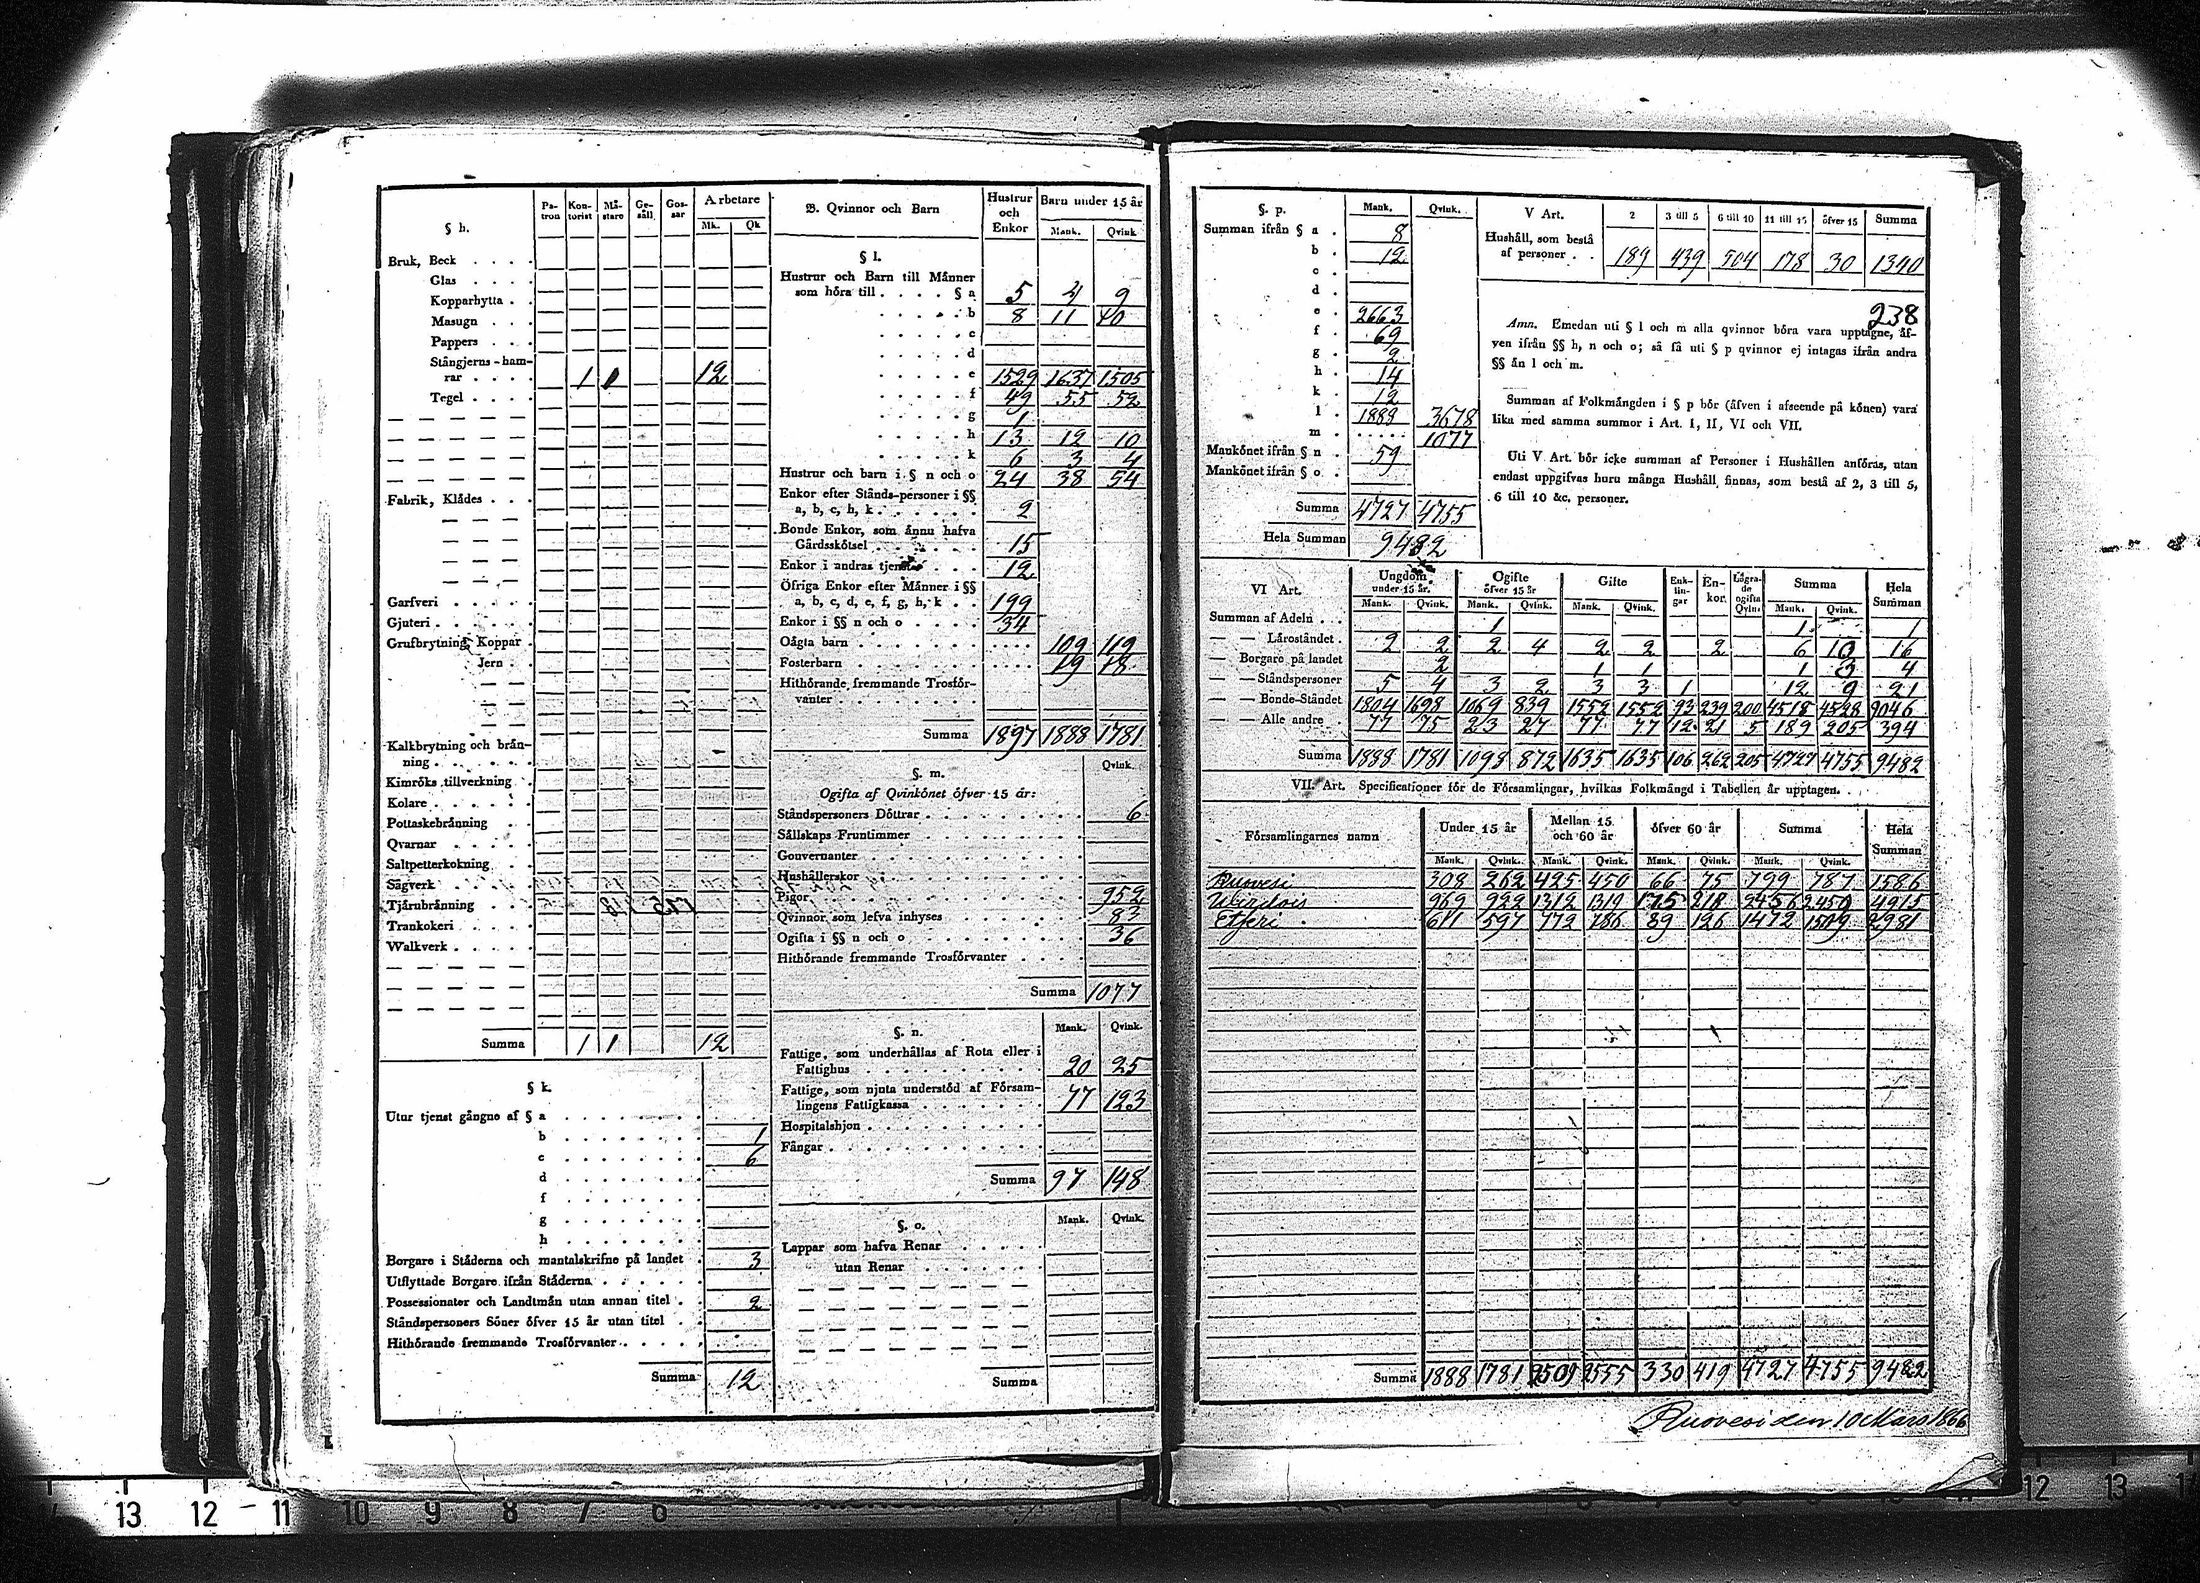 § h. Pa-tron Kon-torist Må-stare Ge-såll Gos-sar Arbetare Mk. Qk
Bruk, Beck
Glas
Kopparhytta
Masugn
Pappers
Stångjerns-ham-
rar 1 1 12
Tegel
Fabrik, Klådes
Garfveri
Gjuteri
Grufbrytning, Koppar
Jern
Kalkbrytning och brån-
ning
Kimröks tillverkning
Kolare
Pottaskebrånning
Qvarnar
Saltpetterkokning
Sågverk
Tjårubrånning
Trankokeri
Walkverk
Summa 1 1 12
§ k.
Utur tjenst gångne af § a
b 1
c 6
d
f
g
h
Borgare i Ståderna och mantalskrifne på landet 3
Utflyttade Borgare ifrån Ståderna
Possessionater och Landtmån utan annan titel 2
Ståndspersoners Söner öfver 15 år utan titel
Hithörande fremmande Trosförvanter
Summa 12
B. Qvinnor och Barn Hustrur och Enkor Barn under 15 år Mank. Qvink
§ l.
Hustrur och Barn till Månner
som höra till § a 5 4 9
b 8 11 40
c
d
e 1529 1637 1505
f 49 55 52
g 1
h 13 12 10
k 6 3 4
Hustrur och barn i § n och o 24 38 54
Enkor efter Stånds-personer i §§
a, b, c, h, k 2
Bonde Enkor, som ånnu hafva
Gårdsskötsel 15
Enkor i andras tjenst 12
Öfriga Enkor efter Månner i §§
a, b, c, d, e, f, g, h, k 199
Enkor i §§ n och o 34
Oågta barn 109 119
Fosterbarn 19 18
Hithörande fremmande Trosför-
vanter
Summa 1897 1888 1781
§. m. Qvink.
Ogifta af Qvinkönet öfver 15 år:
Ståndspersoners Döttrar 6
Sållskaps Fruntimmer
Gouvernanter
Hushållerskor
Pigor 952
Qvinnor som lefva inhyses 83
Ogifta i §§ n och o 36
Hithörande fremmande Trosförvanter
Summa 1077
§. n. Mank. Qvink.
Fattige, som underhållas af Rota eller i
Fattighus 20 25
Fattige, som njuta understöd af Försam-
lingens Fattigkassa 77 123
Hospitalshjon
Fångar
Summa 97 148
§. o. Mank. Qvink.
Lappar som hafva Renar
utan Renar
Summa
§. p. Mank. Qvink.
Summan ifrån § a 8
b 12
c
d
e 2663
f 69
g 2
h 14
k 12
l 1888 3678
m 1077
Mankönet ifrån § n 59
Mankönet ifrån § o
Summa 4727 4755
Hela Summan 9482
V Art. 2 3 till 5 6 till 10 11 till 15 öfver 15 Summa
Hushåll, som bestå
af personer 189 439 504 178 30 1340
238
Anm. Emedan uti § l och m alla qvinnor böra vara upptagne, åf-
ven ifrån §§ h, n och o; så få uti § p qvinnor ej intagas ifrån andra
§§ ån l och m.
Summan af Folkmångden i § p bör (åfven i afseende på könen) vara
lika med samma summor i Art. I, II, VI och VII.
Uti V Art. bör icke summan af Personer i Hushållen anföras, utan
endast uppgifvas huru många Hushåll finnas, som bestå af 2, 3 till 5,
6 till 10 &c. personer.
VI Art. Ungdom under 15 år. Ogifte öfver 15 år Gifte Enk-lin-gar En-kor. Lågra-de ogifta Qvin. Summa Hela Summan
Mank. Qvink. Mank. Qvink. Mank. Qvink. Mank. Qvink.
Summan af Adeln 1 1 1
Låroståndet 2 2 2 4 2 2 2 6 10 16
Borgare på landet 2 1 1 1 3 4
Ståndspersoner 5 4 3 2 3 3 1 12 9 21
Bonde-Ståndet 1804 1698 1069 839 1552 1552 93 239 200 4518 4528 9046
Alle andre 77 75 23 27 77 77 12 21 5 189 205 394
Summa 1888 1781 1098 872 1635 1635 106 262 205 4727 4755 9482
VII. Art. Specificationer för de Församlingar, hvilkas Folkmångd i Tabellen år upptagen.
Församlingarnes namn Under 15 år Mellan 15 och 60 år öfver 60 år Summa Hela Summan
Mank. Qvink. Mank. Qvink. Mank. Qvink. Mank. Qvink.
Ruovesi 308 262 425 450 66 75 799 787 1586
Wirdois 969 922 1312 1319 175 218 2456 2459 4915
Etseri 611 597 772 786 89 126 1472 1509 2981
Summa 1888 1781 2509 2555 330 419 4727 4755 9482
Ruovesi den 10 Mars 1866
13 12 11 10 9 8 7 6
12 13